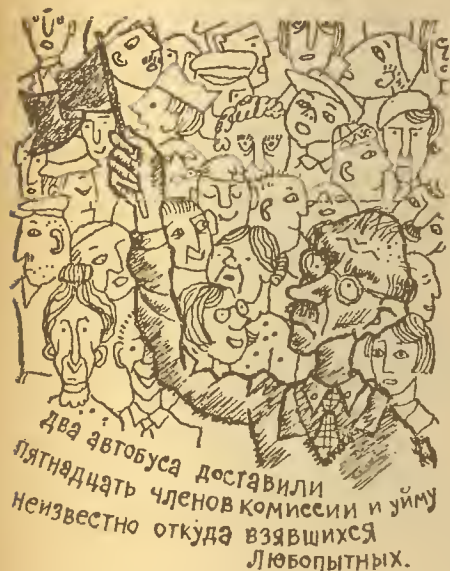 Два автобуса доставили
пятнадцать членов комиссии и уйму
неизвестно откуда взявшихся
любопытных.